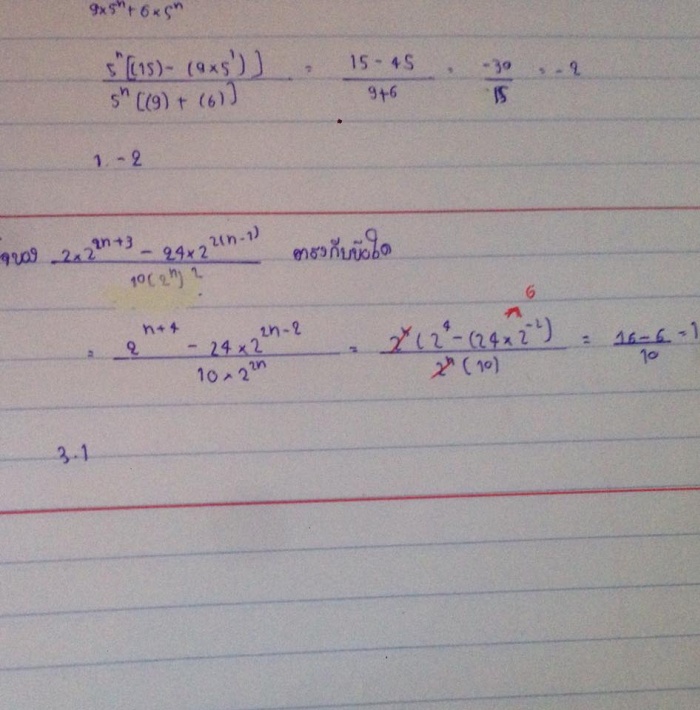 9×5ⁿ + 6×5ⁿ
5ⁿ[(15) - (9×5¹)] / 5ⁿ[(9) + (6)] = 15 - 45 / 9+6 = -30 / 15 = -2
1. -2
2×2²ⁿ⁺³ - 24×2²⁽ⁿ⁻¹⁾ / 10(2ⁿ)² ตรงกับข้อใด
6
= 2ⁿ⁺⁴ - 24×2²ⁿ⁻² / 10×2²ⁿ = 2ⁿ(2⁴ - (24×2⁻²) / 2ⁿ(10) = 16 - 6 / 10 = 1
3. 1